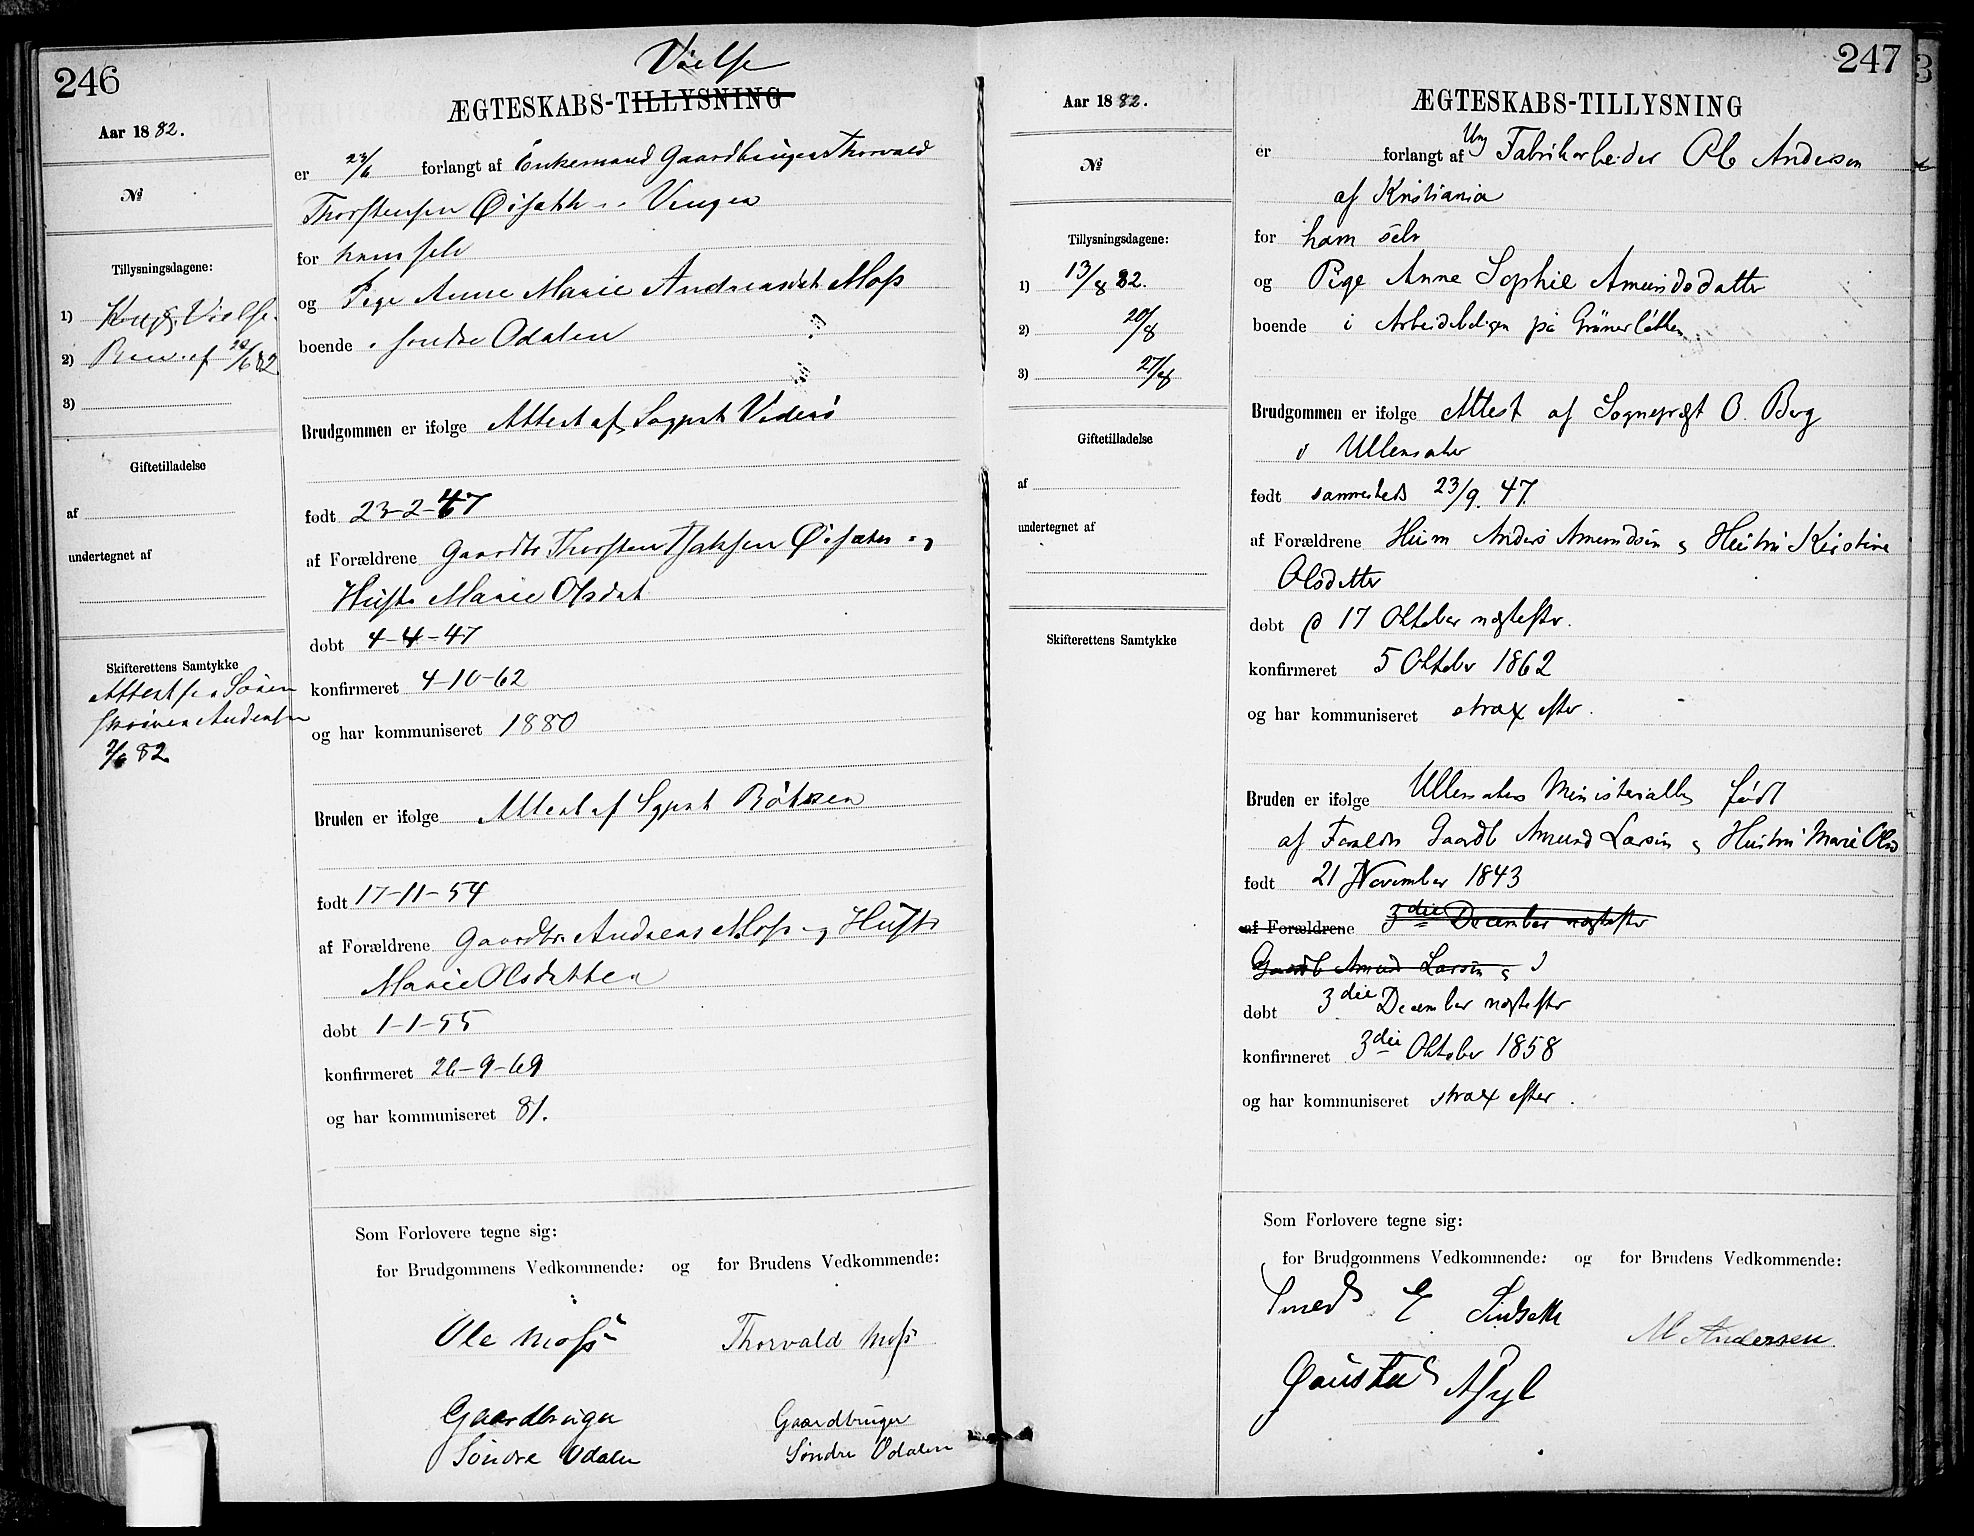 246
Vielse
ÆGTESKABS-TILLYSNING
Aar 1882.
No
Tillysningsdagene:
1) Vielse
2) 82
3)
Giftetilladelse
af
undertegnet af
Skifterettens Samtykke
Attest Sören
Andersen
82
er 23/6 forlangt af Enkemand Gaardbruger Thorvald
Thorstensen Öisæth i Vinger
for ham selv
og Pige Anne Marie Andreasdat Moss
boende i söndre Odalen
Brudgommen er ifolge Attest af Sognpst
født 23-2-47
af Forældrene Gaardbr Thorsten Öisæter og
Hustr Marie Olsdat
døbt 4-4-47
konfirmeret 4-10-62
og har kommuniseret 1880
Bruden er ifølge Attest af Sgpst
født 17-11-54
af Forældrene Gaardbr Andreas Moss og Hustr
Marie Olsdatter
døbt 1-1-55
konfirmeret 26-9-69
og har kommuniseret 81.
Som Forlovere tegne sig:
for Brudgommens Vedkommende: og for Brudens Vedkommende:
Ole Moss Thorvald Moss
Gaardbruger Gaardbruger
Söndre Odalen Söndre Odalen
247
ÆGTESKABS-TILLYSNING
Aar 1882.
No
Tillysningsdagene:
1) 13/8 82.
2) 20/8
3) 27/8
Giftetilladelse
af
undertegnet af
Skifterettens Samtykke
er forlangt af Ung Fabrikarbeider Ole Andersen
af Kristiania
for ham selv
og Pige Anne Sophie Amundsdatter
boende i Arbeiderboligen på Grünerløkken
Brudgommen er ifølge Attest af Sognepræst O. Berg
i Ullensaker
født sammesteds 23/9. 47.
af Forældrene Husm Anders Amundsen & Hustru Kirstine
Olsdatter
døbt 17 Oktober næsteftr.
konfirmeret 5 Oktober 1862
og har kommuniseret strax efter.
Bruden er ifølge Ullensakers Ministerialb født
af Foraldr Gaardb Amund Larsen & Hustru Marie Olsd
født 21 November 1843
af Forældrene 3die December næstefter
Gaardb Amund Larsen &
døbt 3die December næstefter
konfirmeret 3die Oktober 1858
og har kommuniseret strax efter.
Som Forlovere tegne sig:
for Brudgommens Vedkommende: og for Brudens Vedkommende:
Smed E M Andersen
Gaustad Asyl